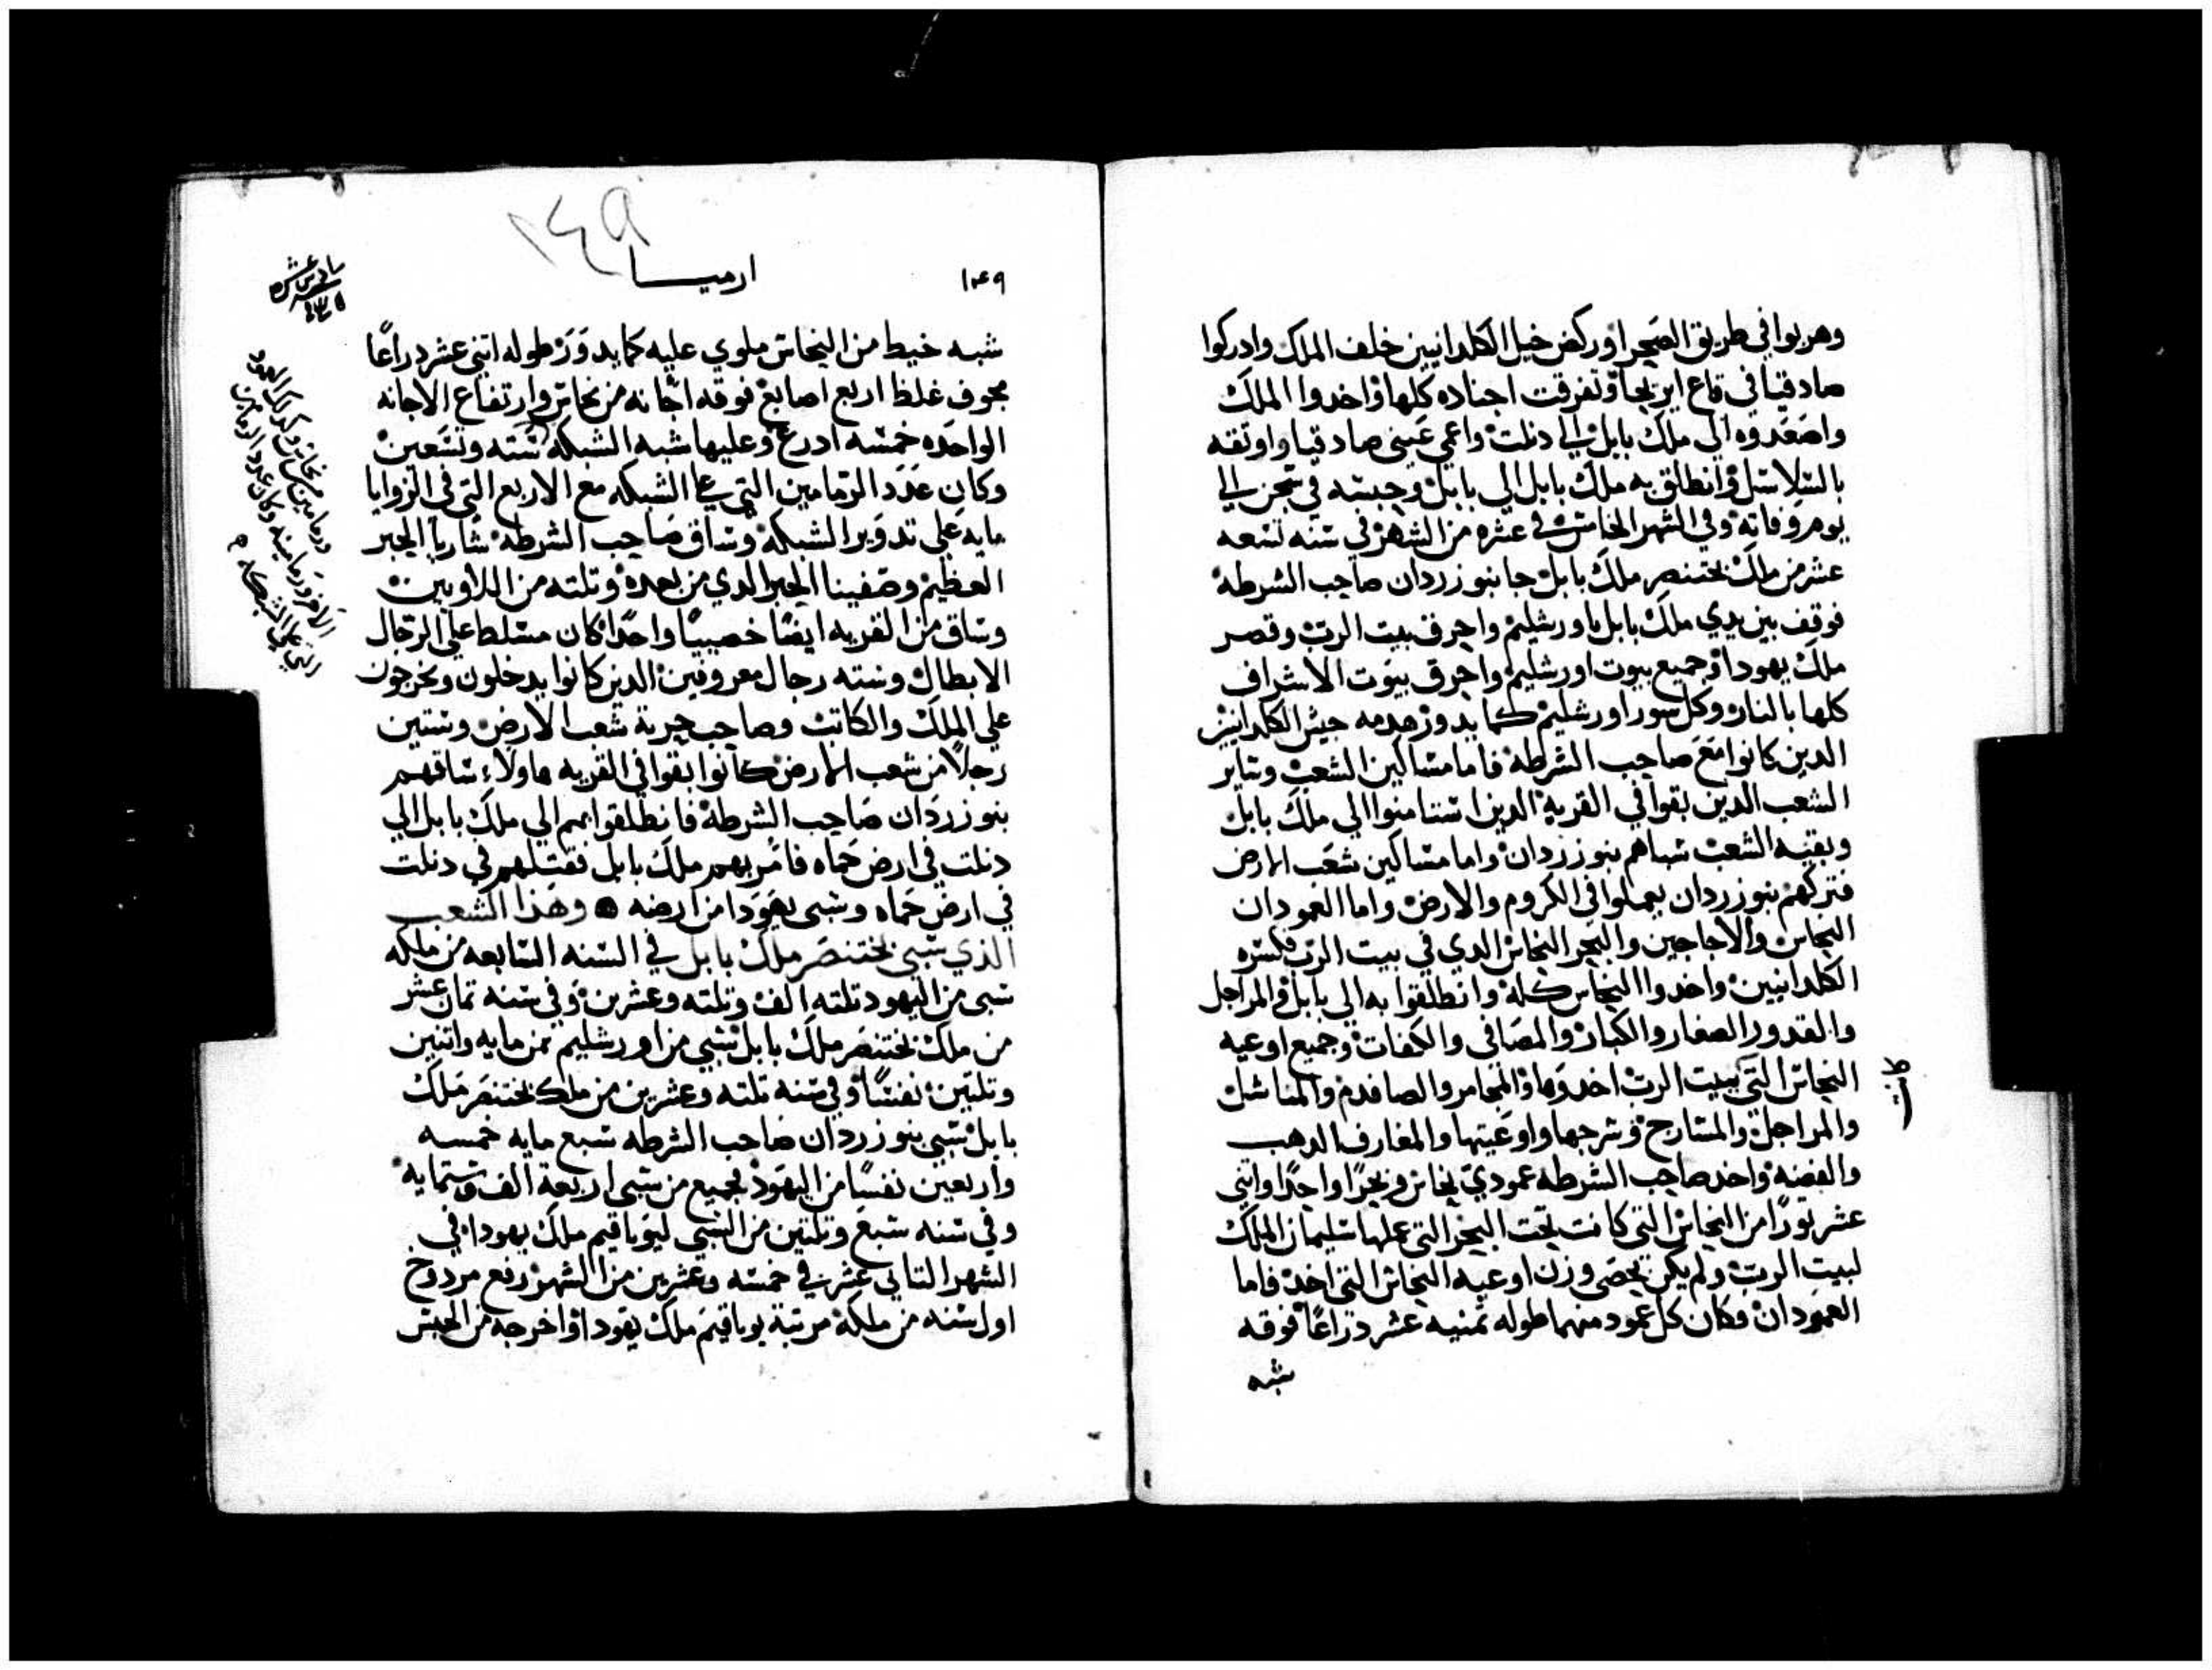 وهربوا في طريق الصحرا وركض خيل الكلدانيين خلف الملك وادركوا
صادقيا في قاع ايريحا وتفرقت اجناده كلها واخدوا الملك
واصعدوه الي ملك بابل الي دبلت واعمي عيني صادقيا واوثقه
بالسلاسل وانطلق به ملك بابل الي بابل وحبسه في سجن الي
يوم وفاته وفي الشهر الخامس في عشره من الشهر في سنه تسعه
عشر من ملك بختنصر ملك بابل جا نبوزردان صاحب الشرطه
فوقف بين يدي ملك بابل باورشليم واحرق بيت الرب وقصر
ملك يهودا وجميع بيوت اورشليم واحرق بيوت الاشراف
كلها بالنار وكل سور اورشليم كما يدور هدمه جيش الكلدانيين
الدين كانوا مع صاحب الشرطه فاما مساكين الشعب وساير
الشعب الدين بقوا في القريه الدين استامنوا الي ملك بابل
وبقيه الشعب سباهم نبوزردان واما مساكين شعب الارض
فتركهم نبوزردان يعملوا في الكروم والارض واما العمودان
النحاس والاجاجين والبحر النحاس الدي في بيت الرب فكسره
الكلدانيين واخدوا النحاس كله وانطلقوا به الي بابل والمراجل
والقدور الصغار والكبار والمصافي والكفات وجميع اوعيه
النحاس التي كانت ببيت الرب اخدوها والمجامر والصافدم والمناشل
والمراجل والمسارج وسرجها واوعيتها والمغارف الدهب
والفضه واخد صاحب الشرطه عمودي نحاس وبحرا واحدا واثني
عشر ثورا من النحاس التي كانت تحت البحر التي عملها سليمان الملك
لبيت الرب ولم يكن يحصي وزن اوعيه النحاس التي اخد فاما
العمودان وكان كل عمود منهما طوله ثمنيه عشر دراعا فوقه
شبه
١٤٩
ارميا
١٤٩
شبه خيط من النحاس ملوي عليه كما يدور طوله اثني عشر دراعا
مجوف غلظ اربع اصابع فوقه اجانه من نحاس وارتفاع الاجانه
الواحده خمسه ادرع وعليها شبه الشبكه سته وتسعين
وكان عدد الرمامين التي علي الشبكه مع الاربع التي في الزوايا
مايه علي تدوير الشبكه وساق صاحب الشرطه شاريا الحبر
العظيم وصفينا الحبر الدي من بعده وتلته من اللاويين
وساق من القريه ايضا خصييا واحدا كان مسلط علي الرجال
الابطال وسته رجال معروفين الدين كانوا يدخلون ويخرجون
علي الملك والكاتب وصاحب حربة شعب الارض وستين
رجلا من شعب الارض كانوا بقوا في القريه هاولاء ساقهم
نبوزردان صاحب الشرطه فانطلقوا بهم الي ملك بابل الي
دبلت في ارض حماه فامر بهم ملك بابل فقتلهم في دبلت
في ارض حماه وسبي يهودا من ارضه وهذا الشعب
الذي سبي بختنصر ملك بابل في السنه السابعه من ملكه
سبي من اليهود تلته الف وتلته وعشرين وفي سنه تمان عشر
من ملك بختنصر ملك بابل سبي من اورشليم تمن مايه واتنين
وتلتين نفسا وفي سنه تلته وعشرين من ملك بختنصر ملك
بابل سبي نبوزردان صاحب الشرطه سبع مايه خمسه
واربعين نفسا من اليهود فجميع من سبي اربعة الف وستمايه
وفي سنه سبع وتلتين من السبي ليوياقيم ملك يهودا في
الشهر التاني عشر في خمسه وعشرين من الشهر رفع مردوخ
اول سنه من ملكه مرتبة يوياقيم ملك يهودا واخرجه من الحبس